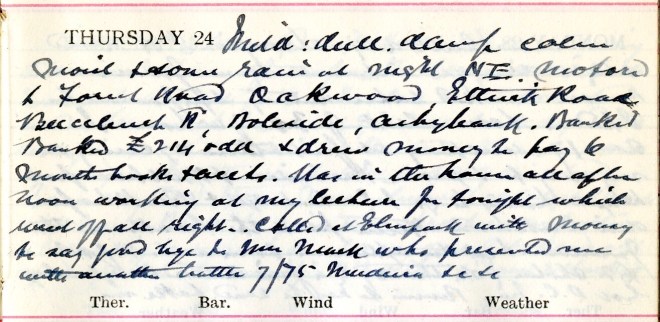 THURSDAY 24 Mild: dull. damp calm
moist & some rain at night NE. Motored
to Forest Road Oakwood, Ettrick Road
Buccleuch Rd, Boleside, Abbybank. Banked
Banked £214 odd & drew money to pay 6
Month books & accts. Was in the house all after
noon working at my lecture for tonight which
went off all right. Called at Elmpark with Mouny
to say good bye to Mrs Mack who presented me
with another bottle 7/75 Madeira &c &c
Ther. Bar. Wind Weather